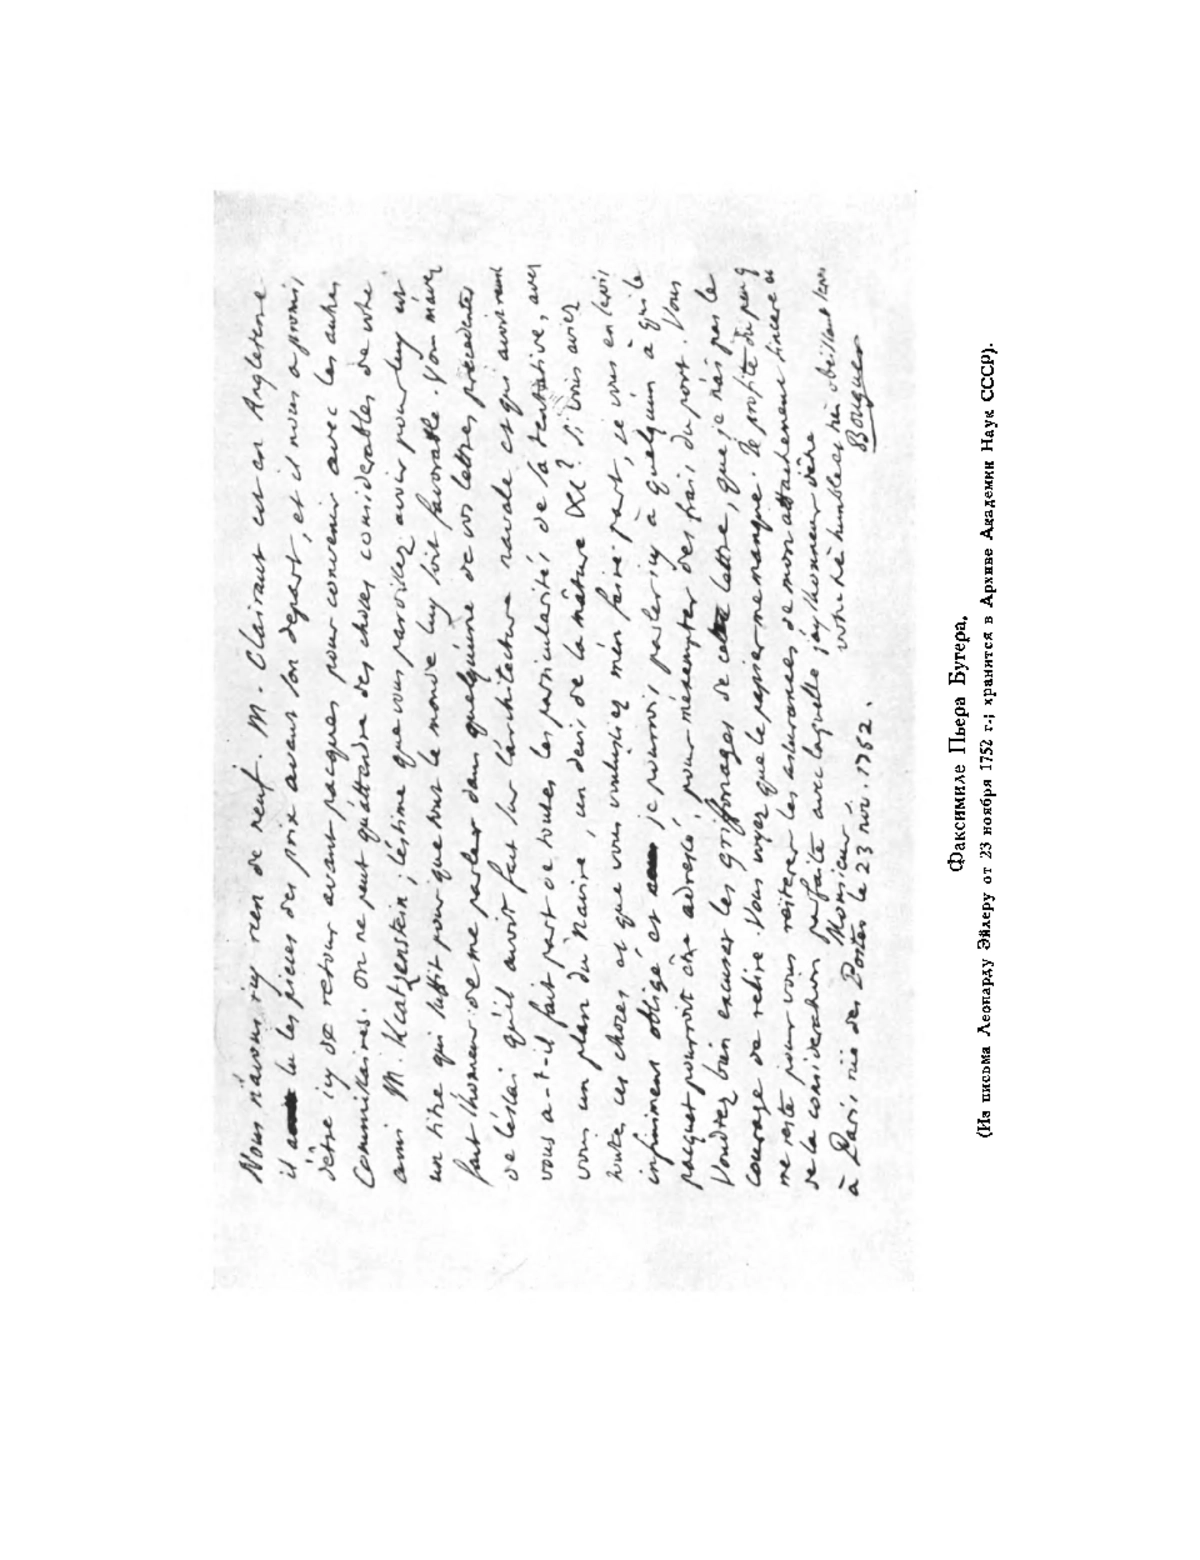 Nous n'avons icy rien de neuf. M. Clairaut est en Angleterre
il a lu les pieces des prix avant son depart, et il nous a promis
d'etre icy de retour avant pacques pour convenir avec les autres
Commissaires. On ne peut qu'attendre des choses considerables de votre
ami M. Kratzenstein; l'estime que vous paroissez avoir pour luy est
un titre qui suffit pour que tout le monde luy soit favorable. Vous m'avez
fait l'honneur de me parler dans quelqu'une de vos lettres precedentes
de l'essai qu'il avoit fait sur l'architecture navale et qui avoit reussi
vous a-t-il fait part de toutes les particularités de la tentative, avez
vous un plan du Navire, un devis de la mâture &c? Si vous aviez
toutes ces choses et que vous voulussiez m'en faire part, je vous en serois
infiniment obligé et je pourrois parler icy à quelqu'un à qui le
pacquet pourroit etre adressé, pour m'exempter des frais du port. Vous
voudrez bien excuser les griffonages de cette lettre, que je n'ai pas le
courage de relire. Vous voyez que le papier me manque. Je profite du peu q
me reste pour vous reiterer les assurances de mon attachement sincere et
de la consideration parfaite avec laquelle j'ay l'honneur d'être
Monsieur
votre très humble et très obeissant serv
à Paris rüe des Postes le 23 nov. 1752.
Bouguer
Факсимиле Пьера Бугера,
(Из письма Леонарду Эйлеру от 23 ноября 1752 г.; хранится в Архиве Академии Наук СССР).